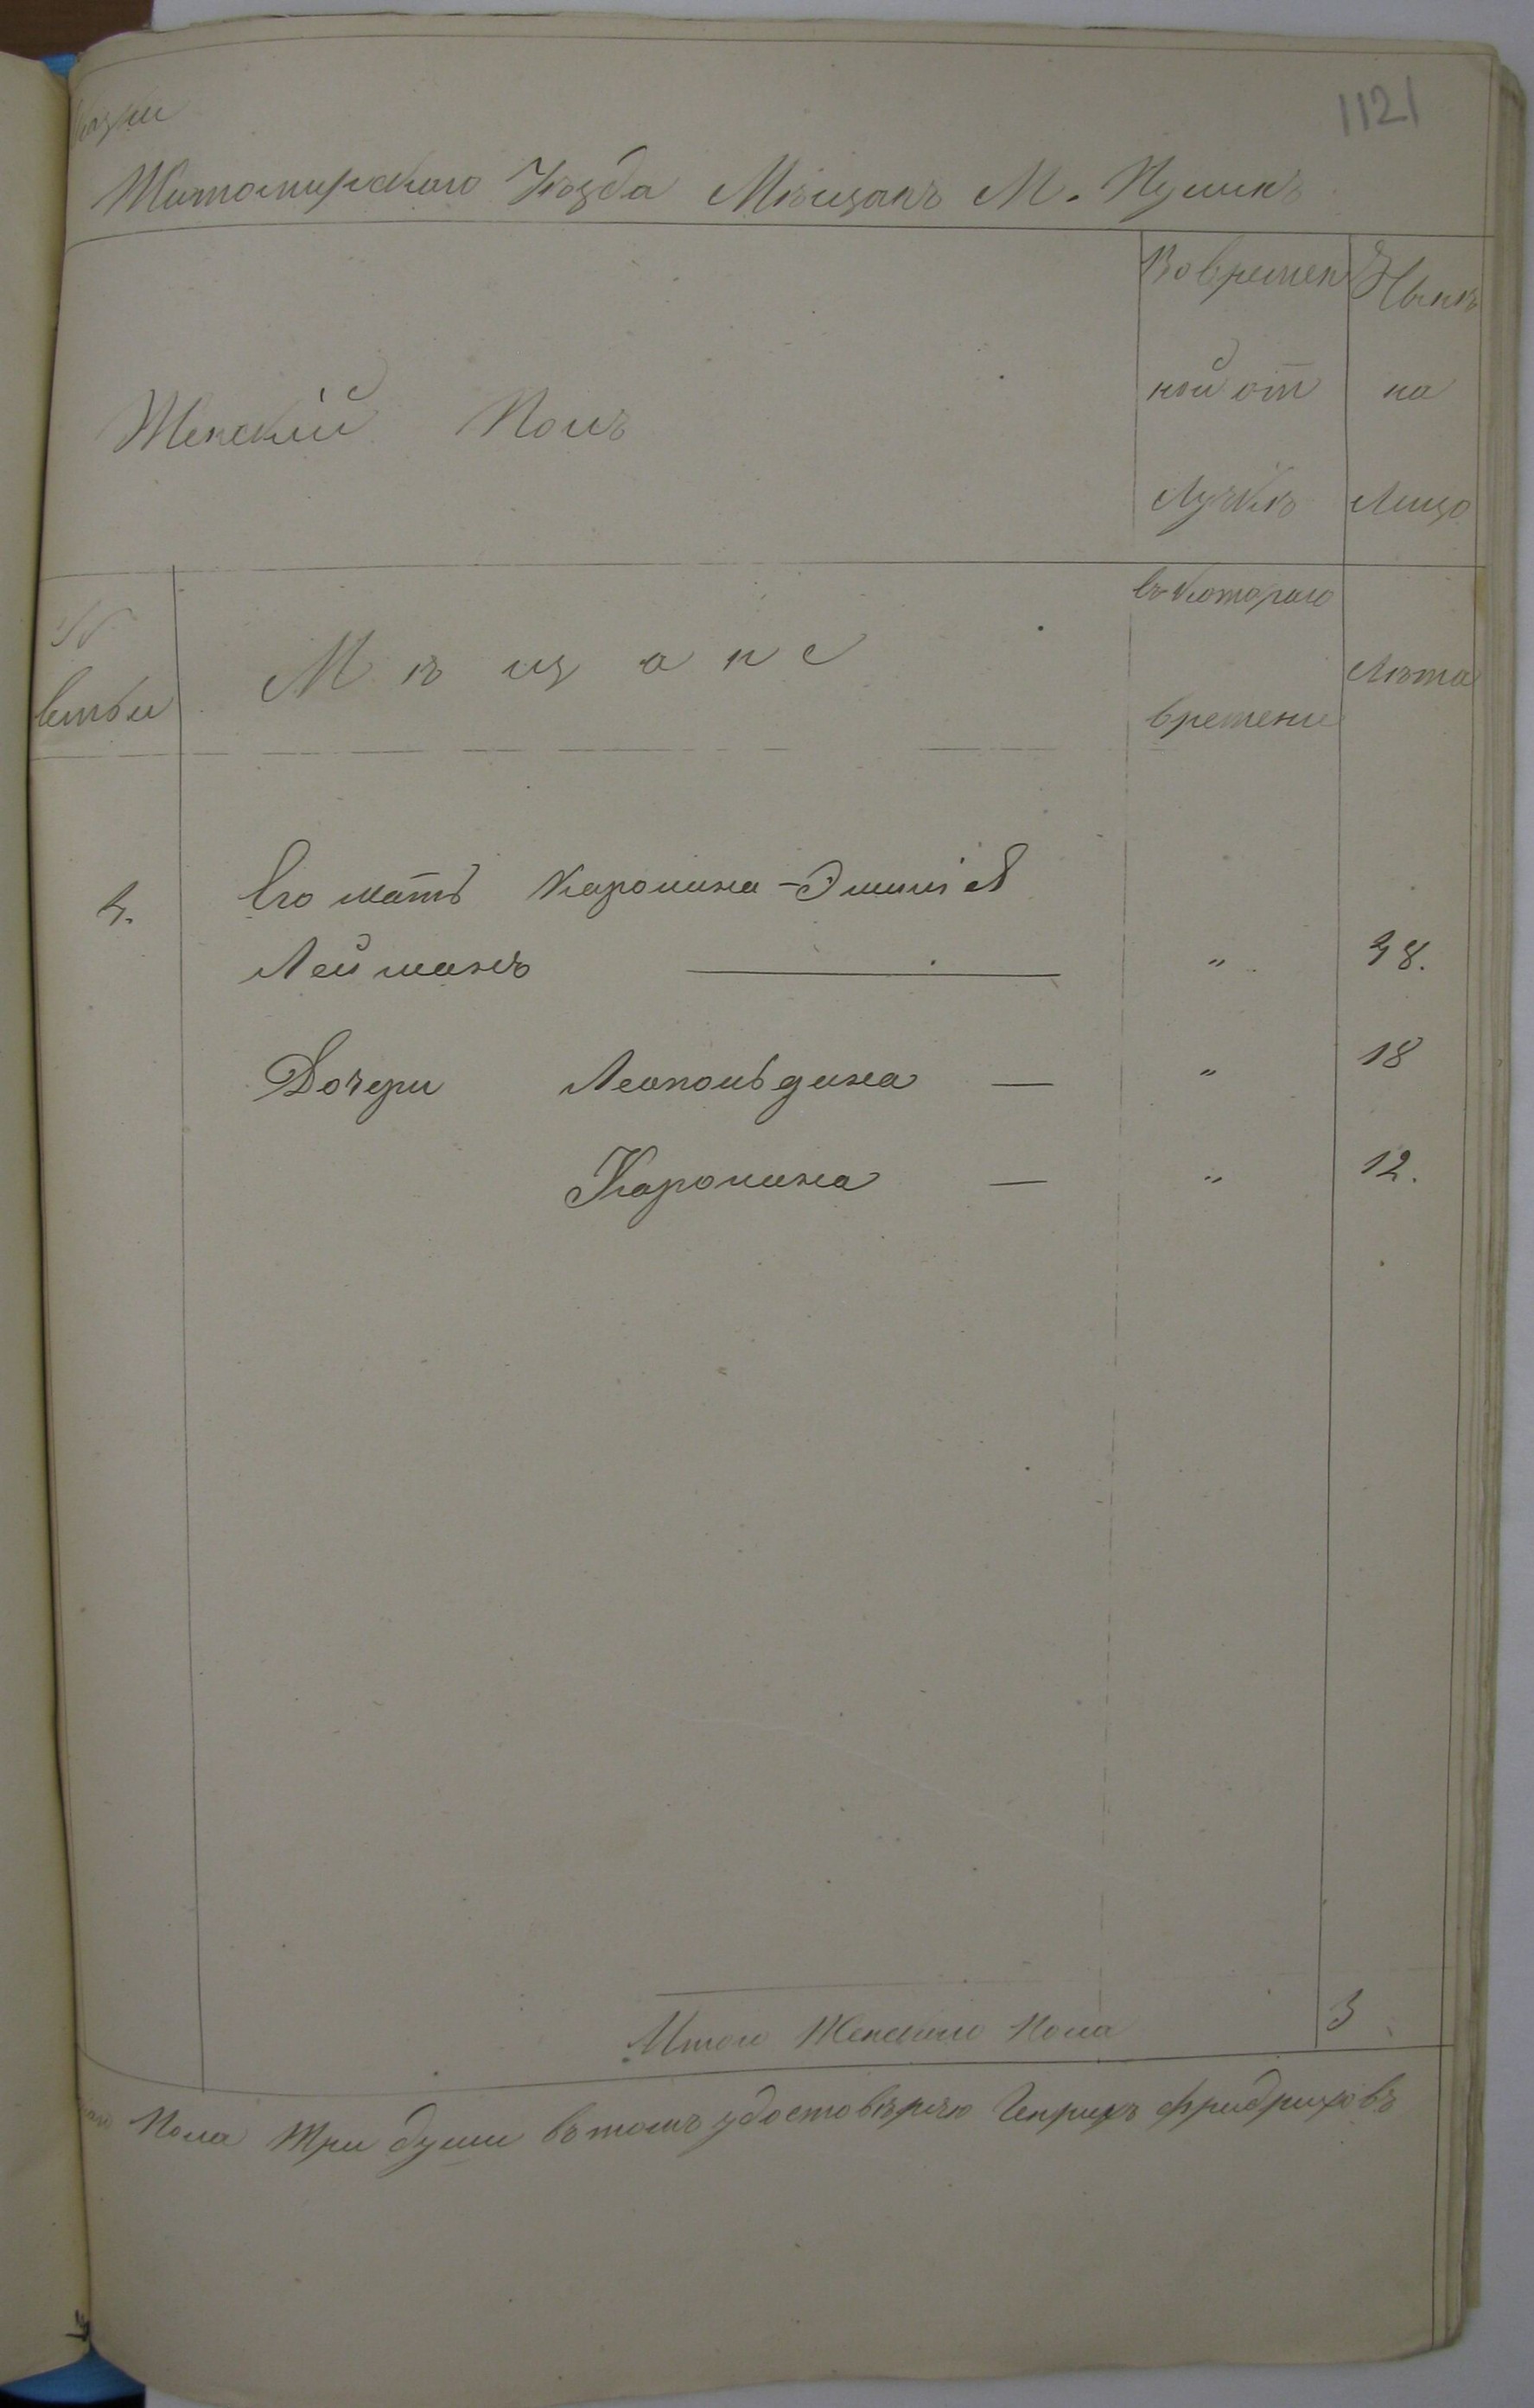 1121
Житомирскаго Уѣзда Мѣщанъ М. Пулинъ
Женскій Полъ
Во времен
ной от
лучкѣ
Нынѣ
на
Лицо
Мѣщане
съ котораго
времени
Лѣта
4. Его мать Каролина-Эмилія
Лейманъ — " 38.
Дочери Леопольдина — " 18
Каролина — " 12.
Итого Женскаго Пола 3
Пола три души въ томъ удостовѣряю Генрихъ Фридриховъ